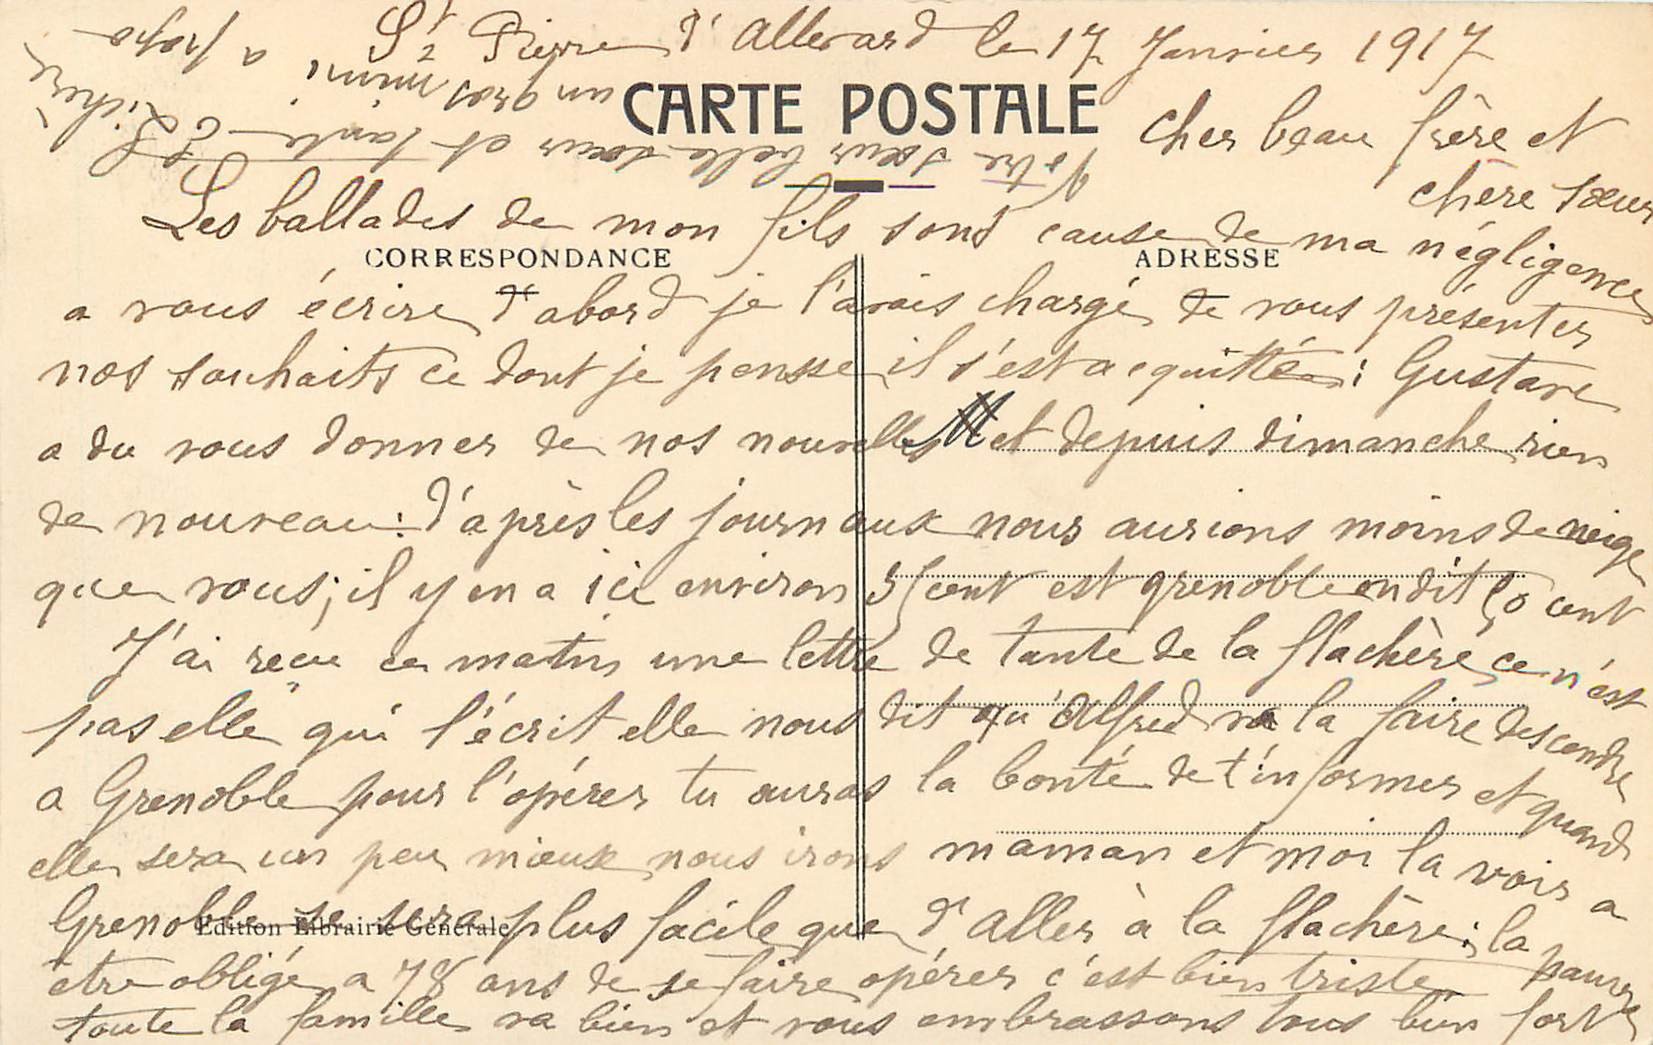 St Pierre d'Allevard le 17 Janvier 1917
CARTE POSTALE
Cher beau frère et
chère sœur
Les ballades de mon fils sont cause de ma négligence
CORRESPONDANCE
ADRESSE
a vous écrire d'abord je l'avais chargé de vous présenter
nos souhaits ce dont je pensse il s'est acquittée: Gustave
a du vous donner de nos nouvelles et depuis dimanche rien
de nouveau: d'après les journaux nous aurions moins de neige
que vous; il y en a ici environ cent est grenoble on dit 50 cent
J'ai reçu ce matin une lettre de tante de la flachère ce n'est
pas elle qui l'écrit elle nous dit qu'Alfred va la faire descendre
a Grenoble pour l'opérer tu auras la bonté de t'informer et quand
elle sera un peu mieux nous irons maman et moi la voir a
Grenoble se sera plus facile que d'aller à la flachère; la pauvre
Edition Librairie Générale
être obligé a 78 ans de se faire opérer c'est bien triste
toute la famille va bien et vous embrassons tous bien fort
Votre sœur belle sœur et tante
un gros mimi
a papa